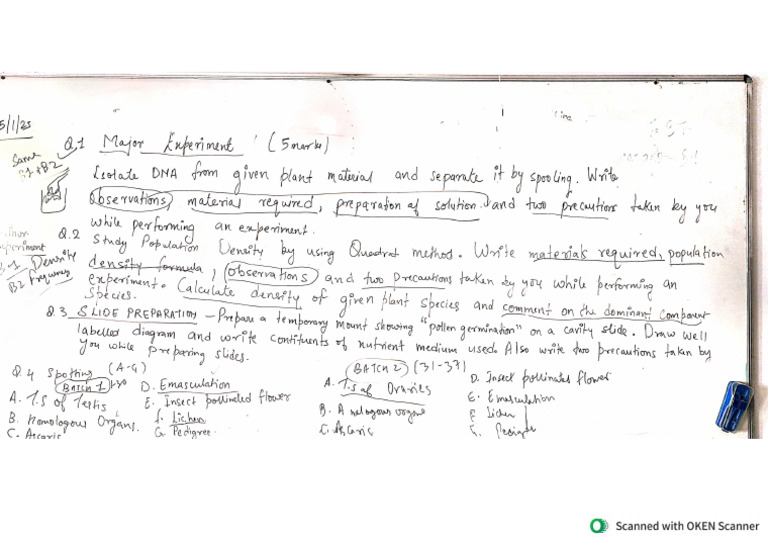 5/1/23
Q.1 Major Experiment (5 marks)
Same
B1+B2
Isolate DNA from given plant material and separate it by spooling. Write
Observations, material required, preparation of solution and two precautions taken by you
while performing an experiment.
Q.2 Study Population Density by using Quadrat method. Write materials required, population
density formula, observations and two precautions taken by you while performing an
experiment. Calculate density of given plant species and comment on the dominant component
species.
B-1 Density
B2 frequency
Q.3 SLIDE PREPARATION - Prepare a temporary mount showing "pollen germination" on a cavity slide. Draw well
labelled diagram and write contituents of nutrient medium used. Also write two precautions taken by
you while preparing slides.
Q.4 Spotting (A-G)
BATCH 1
A. T.S of Testis
B. Homologous Organs.
C. Ascaris
D. Emasculation
E. Insect pollinated flower
F. Lichen
G. Pedigree
BATCH 2 (31-37)
A. T.S of Ovaries
B. Analogous organs
C. Ascaris
D. Insect pollinated flower
E. Emasculation
F. Lichen
G. Pedigree
Scanned with OKEN Scanner